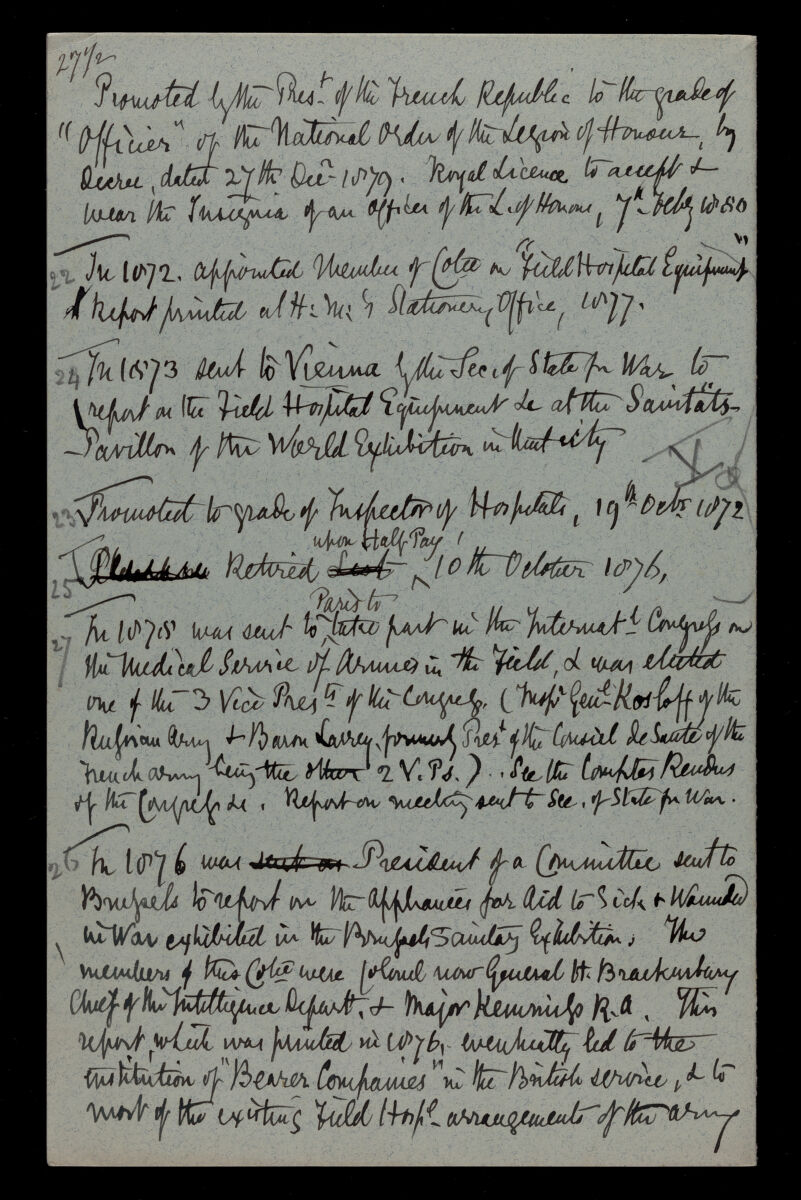 27 1/2
Promoted by the Prest. of the French Republic to the grade of
"Officier" of the National Order of the Legion of Honour, by
decree, dated 27th Decr. 1879. Royal Licence to accept &
wear the Insignia of an Officer of the L. of Honour, 7th Feby 1880
22 In 1872. appointed Member of Cotee on "Field Hospital Equipment"
Report printed at H: M:'s Stationery Office, 1877.
24 In 1873 sent to Vienna by the Sec. of State for War to
report on the Field Hospital Equipment &c at the Sanitäts-
Pavillon of the World Exhibition in that city
23 Promoted to grade of Inspector of Hospitals, 19th Octr. 1872
upon Half Pay
25 Retired 10th October 1876,
Paris to
27 In 1878 was sent to take part in the Internatl. Congress on
the Medical Service of Armies in the Field, & was elected
one of the 3 Vice Prests. of the Congress. (Inspr Genl. Kosloff of the
Russian Army & Baron Larrey, formerly Prest. of the Conseil de Santé of the
French army being the other 2 V. Ps.) . See the Comptes Rendus
of the Congress &c. Report on meeting sent to Sec. of State for War.
26 In 1876 was President of a Committee sent to
Brussels to report on the Appliances for Aid to Sick & Wounded
in War exhibited in the Brussels Sanitary Exhibition. The
members of this Cotee were Colonel now General H. Brackenbury
Chief of the Intelligence Departt. & Major Kemmis R.A. This
report, which was printed in 1876, eventually led to the
institution of "Bearer Companies" in the British service, & to
most of the existing Field Hospl. arrangements of the army